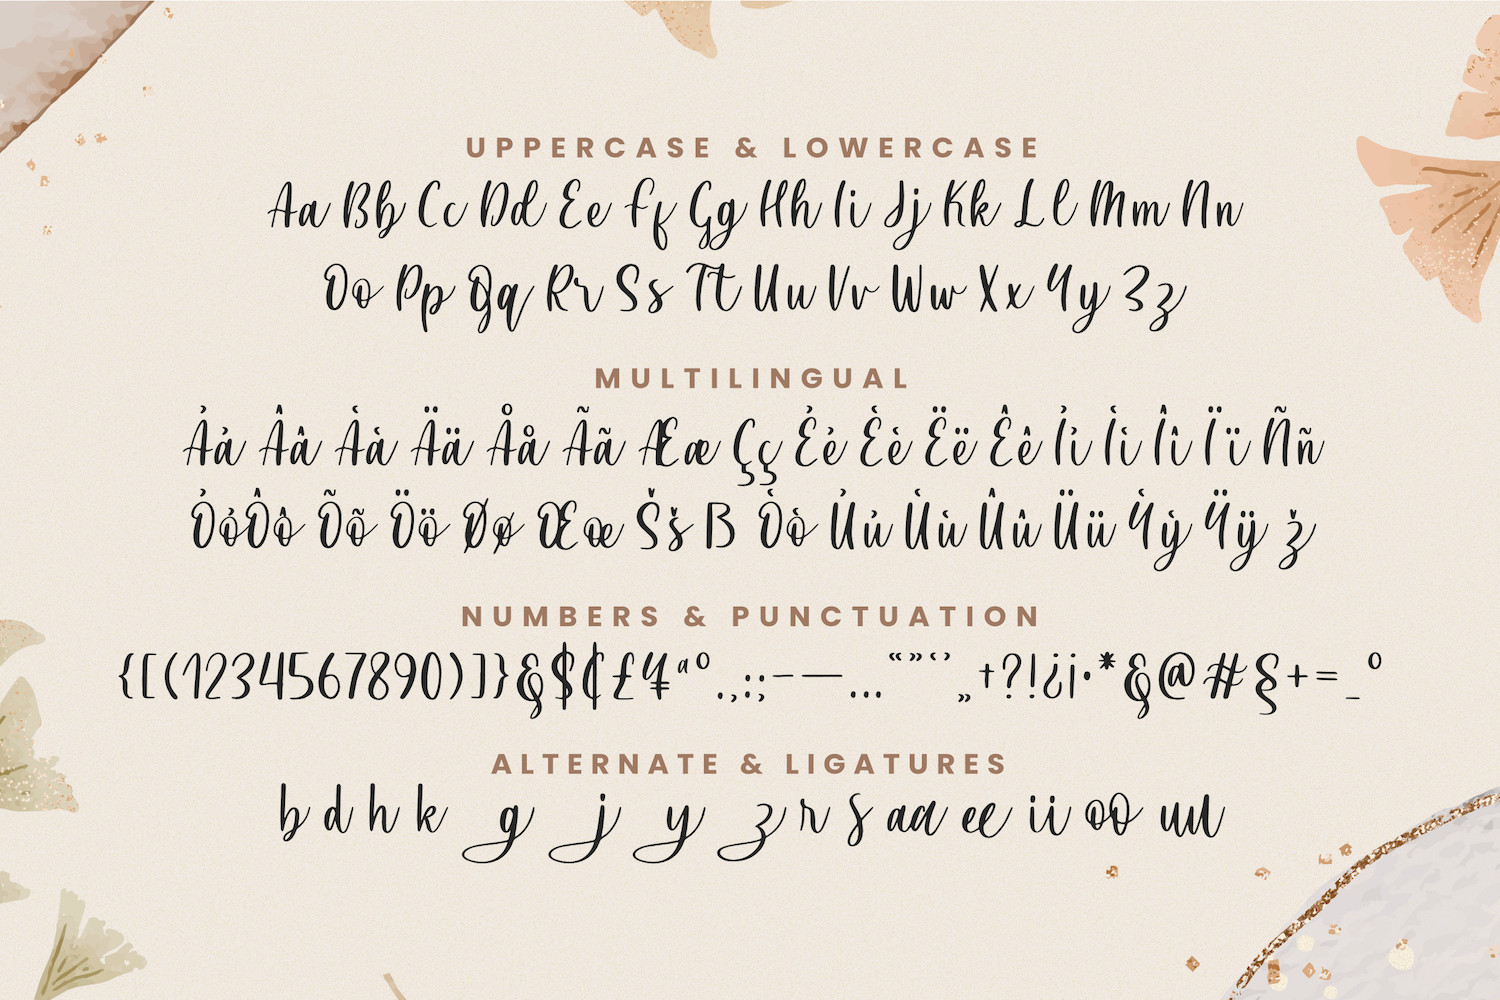 UPPERCASE & LOWERCASE
Aa Bb Cc Dd Ee Ff Gg Hh Ii Jj Kk Ll Mm Nn
Oo Pp Qq Rr Ss Tt Uu Vv Ww Xx Yy Zz
MULTILINGUAL
Áá Ââ Àà Ää Åå Ãã Ææ Çç Éé Èè Ëë Êê Íí Ìì Îî Ïï Ññ
ÓóÔô Õõ Öö Øø Œœ Šš ß Òò Úú Ùù Ûû Üü Ýý Ÿÿ ž
NUMBERS & PUNCTUATION
{[(1234567890)]}&$¢£¥ªº.,:;-–—…“”‘’„†?!¿¡·*&@#§+=_°
ALTERNATE & LIGATURES
b d h k g j y z r s aa ee ii oo ul